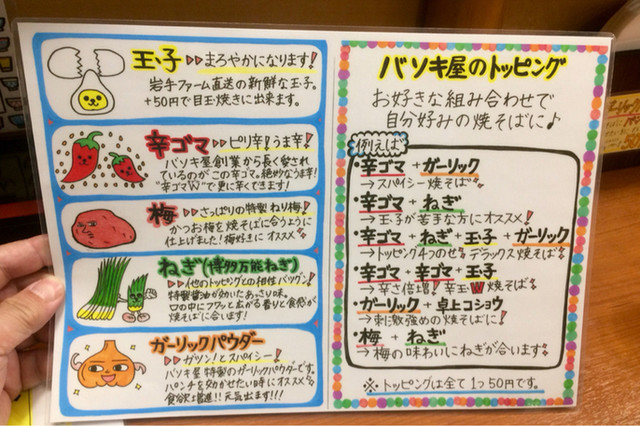 玉子 ▷▷まろやかになります!
岩手ファーム直送の新鮮な玉子。
+50円で目玉焼きに出来ます。
辛ゴマ ▷▷ピリ辛!うま辛!
バソキ屋創業から長く愛され
ているのがこの辛ゴマ。絶妙なうま辛!
"辛ゴマW"で更に辛くできます!
梅 ▷▷さっぱりの特製ねり梅!
かつお梅を焼そばに合うように
仕上げました!梅好きにオススメ
ねぎ(博多万能ねぎ)
▷▷他のトッピングとの相性バツグン!
特製醤油が効いたあっさり味。
口の中にフワッと広がる香りと食感が
焼そばに合います!
ガーリックパウダー
▷▷ガツン!とスパイシー!
バソキ屋特製のガーリックパウダーです。
パンチを効かせたい時にオススメ
食欲増進!!元気出ます!!!
バソキ屋のトッピング
お好きな組み合わせで
自分好みの焼そばに♪
例えば
・辛ゴマ+ガーリック
→スパイシー焼そば
・辛ゴマ+ねぎ
→玉子が苦手な方にオススメ!
・辛ゴマ+ねぎ+玉子+ガーリック
→トッピング4つのせ"デラックス焼そば"
・辛ゴマ+辛ゴマ+玉子
→辛さ倍増!辛玉W焼そば
・ガーリック+卓上コショウ
→刺激強めの焼そばに!
・梅+ねぎ
→梅の味わいにねぎが合います
※トッピングは全て1つ50円です。